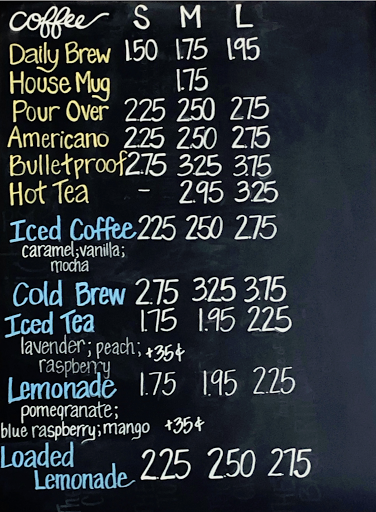 coffee S M L
Daily Brew 1.50 1.75 1.95
House Mug 1.75
Pour Over 2.25 2.50 2.75
Americano 2.25 2.50 2.75
Bulletproof 2.75 3.25 3.75
Hot Tea - 2.95 3.25
Iced Coffee 2.25 2.50 2.75
caramel; vanilla;
mocha
Cold Brew 2.75 3.25 3.75
Iced Tea 1.75 1.95 2.25
lavender; peach; +35¢
raspberry
Lemonade 1.75 1.95 2.25
pomegranate;
blue raspberry; mango +35¢
Loaded
Lemonade 2.25 2.50 2.75